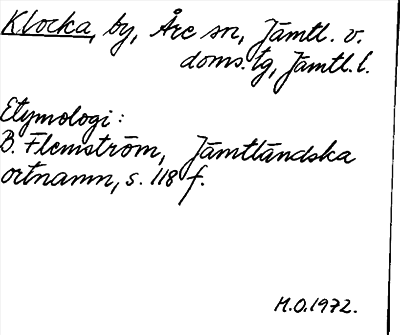 Klocka, by, Åre sn, Jämtl. v.
doms.tg, Jämtl. l.
Etymologi:
B. Flemström, Jämtländska
ortnamn, s. 118 f.
M.O.1972.